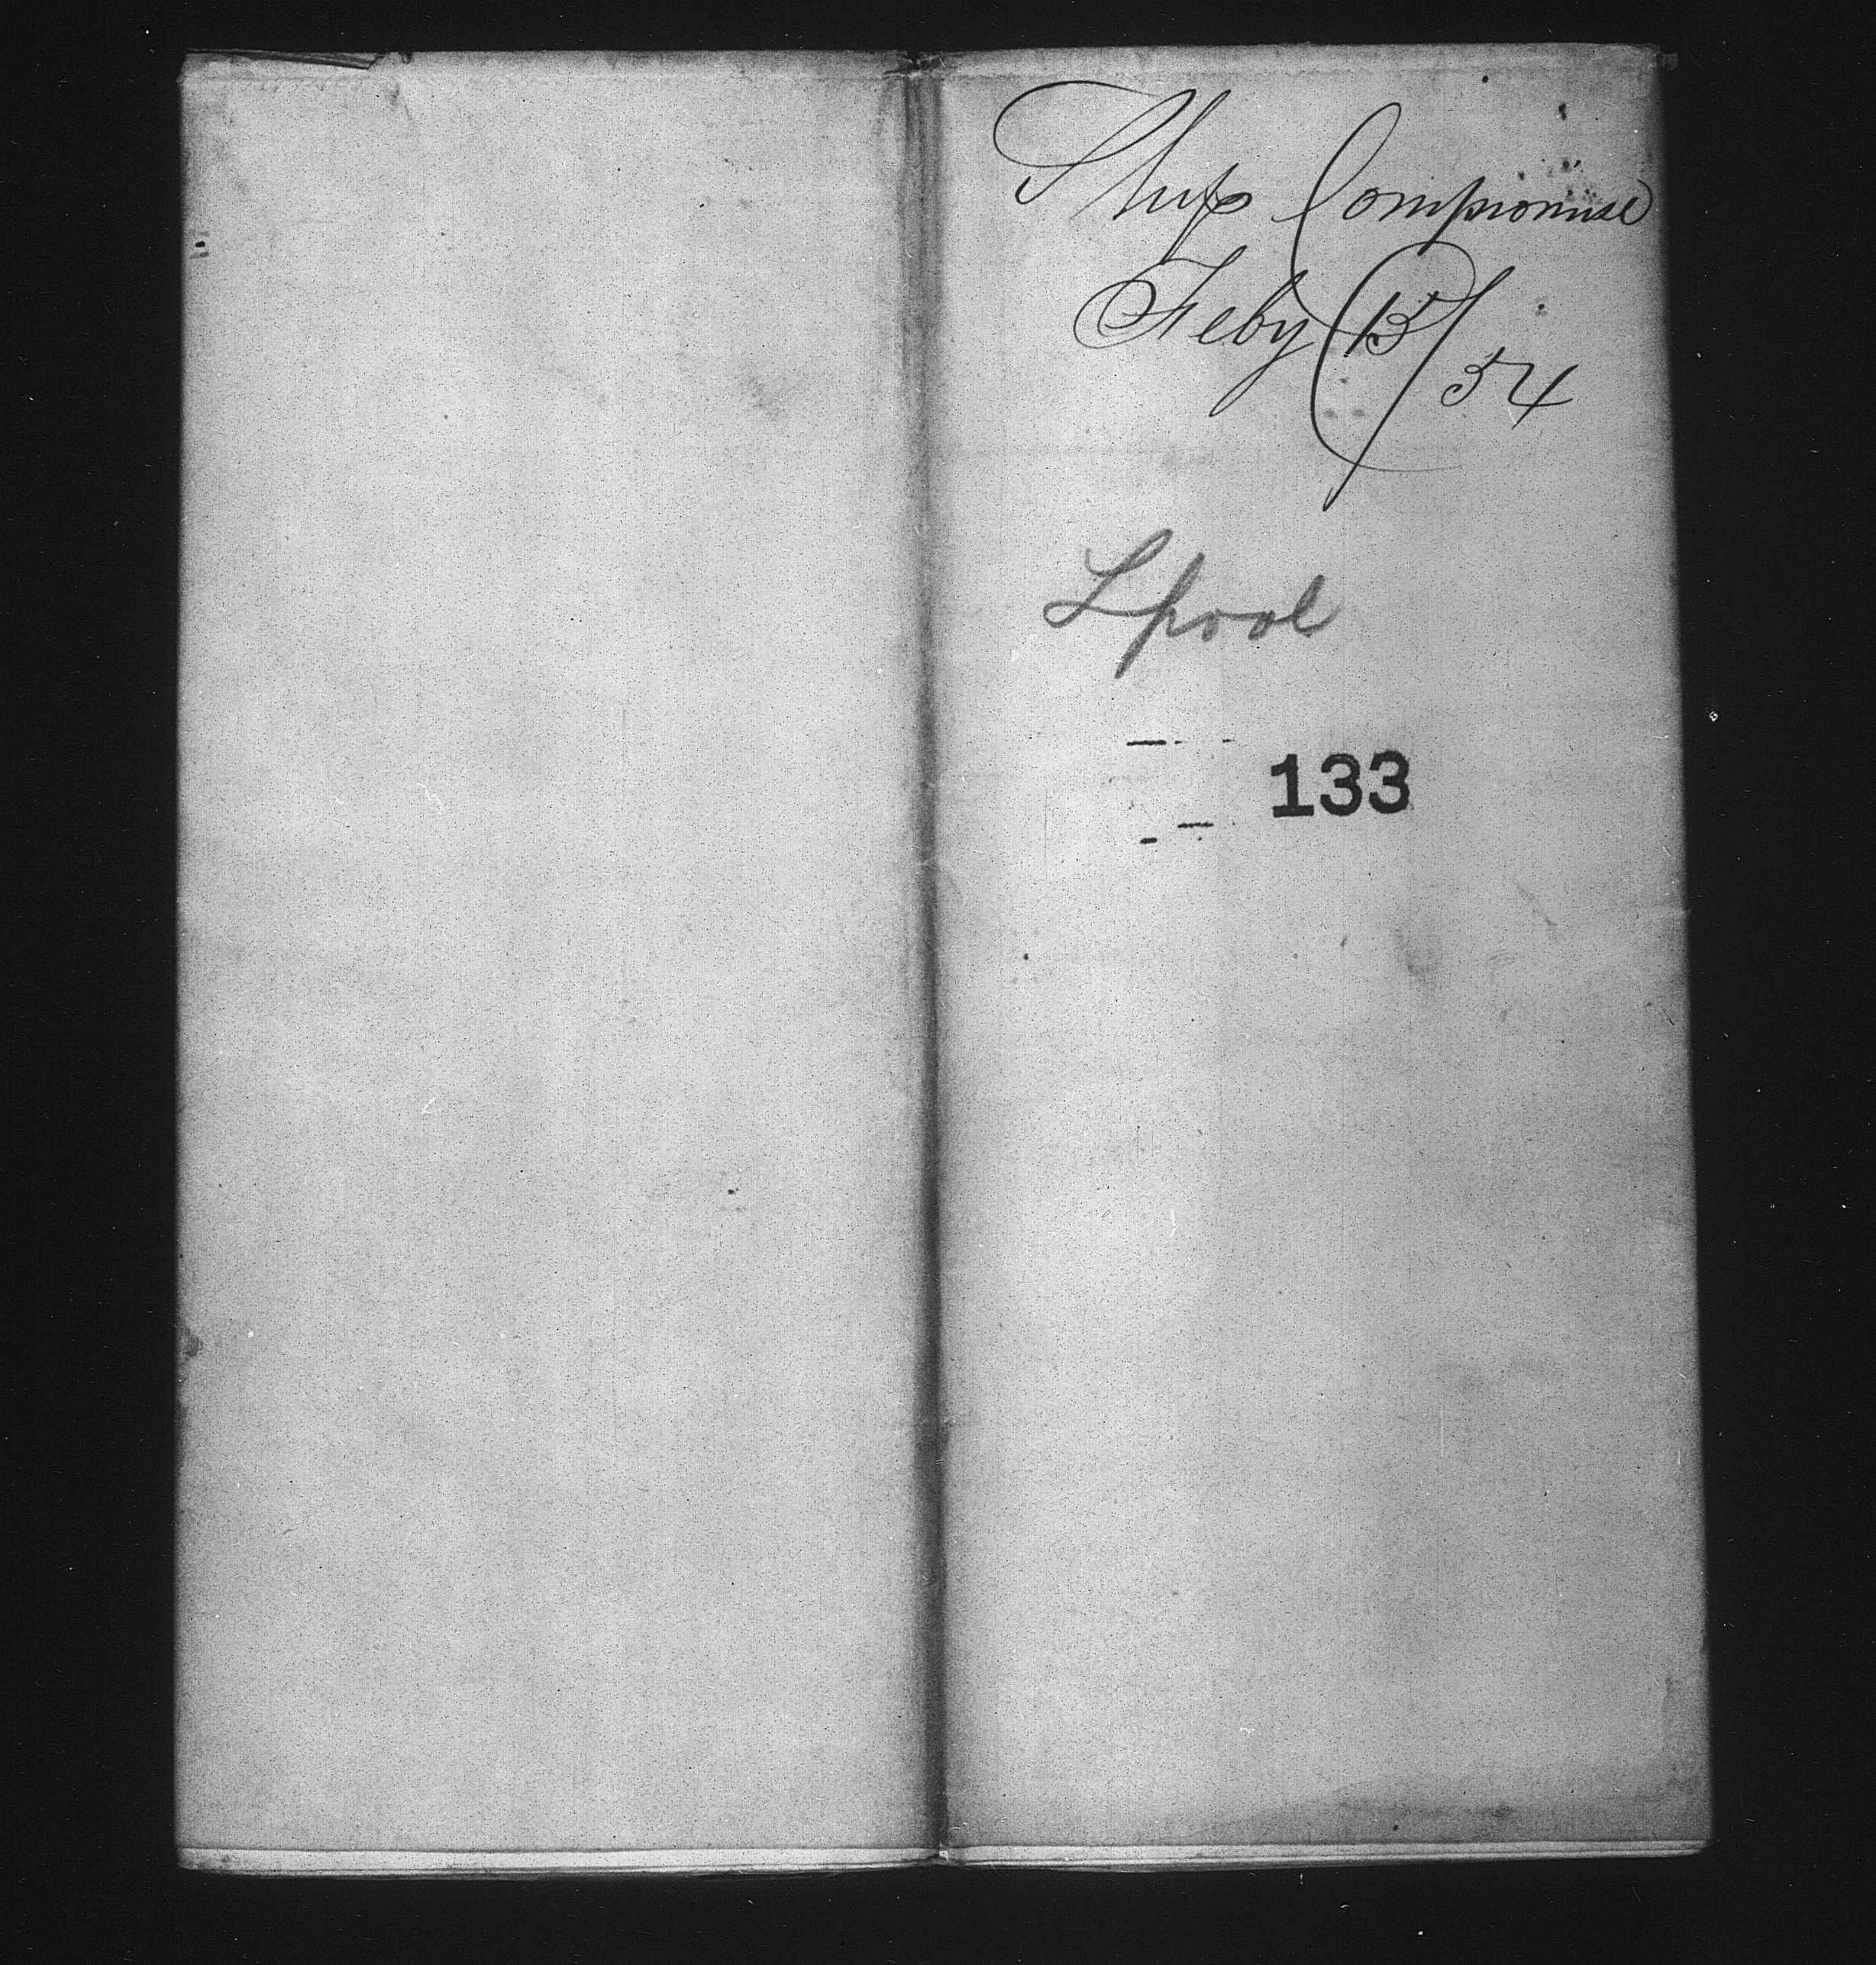 Ship Compromise
Feby 15/54
Lpool
133